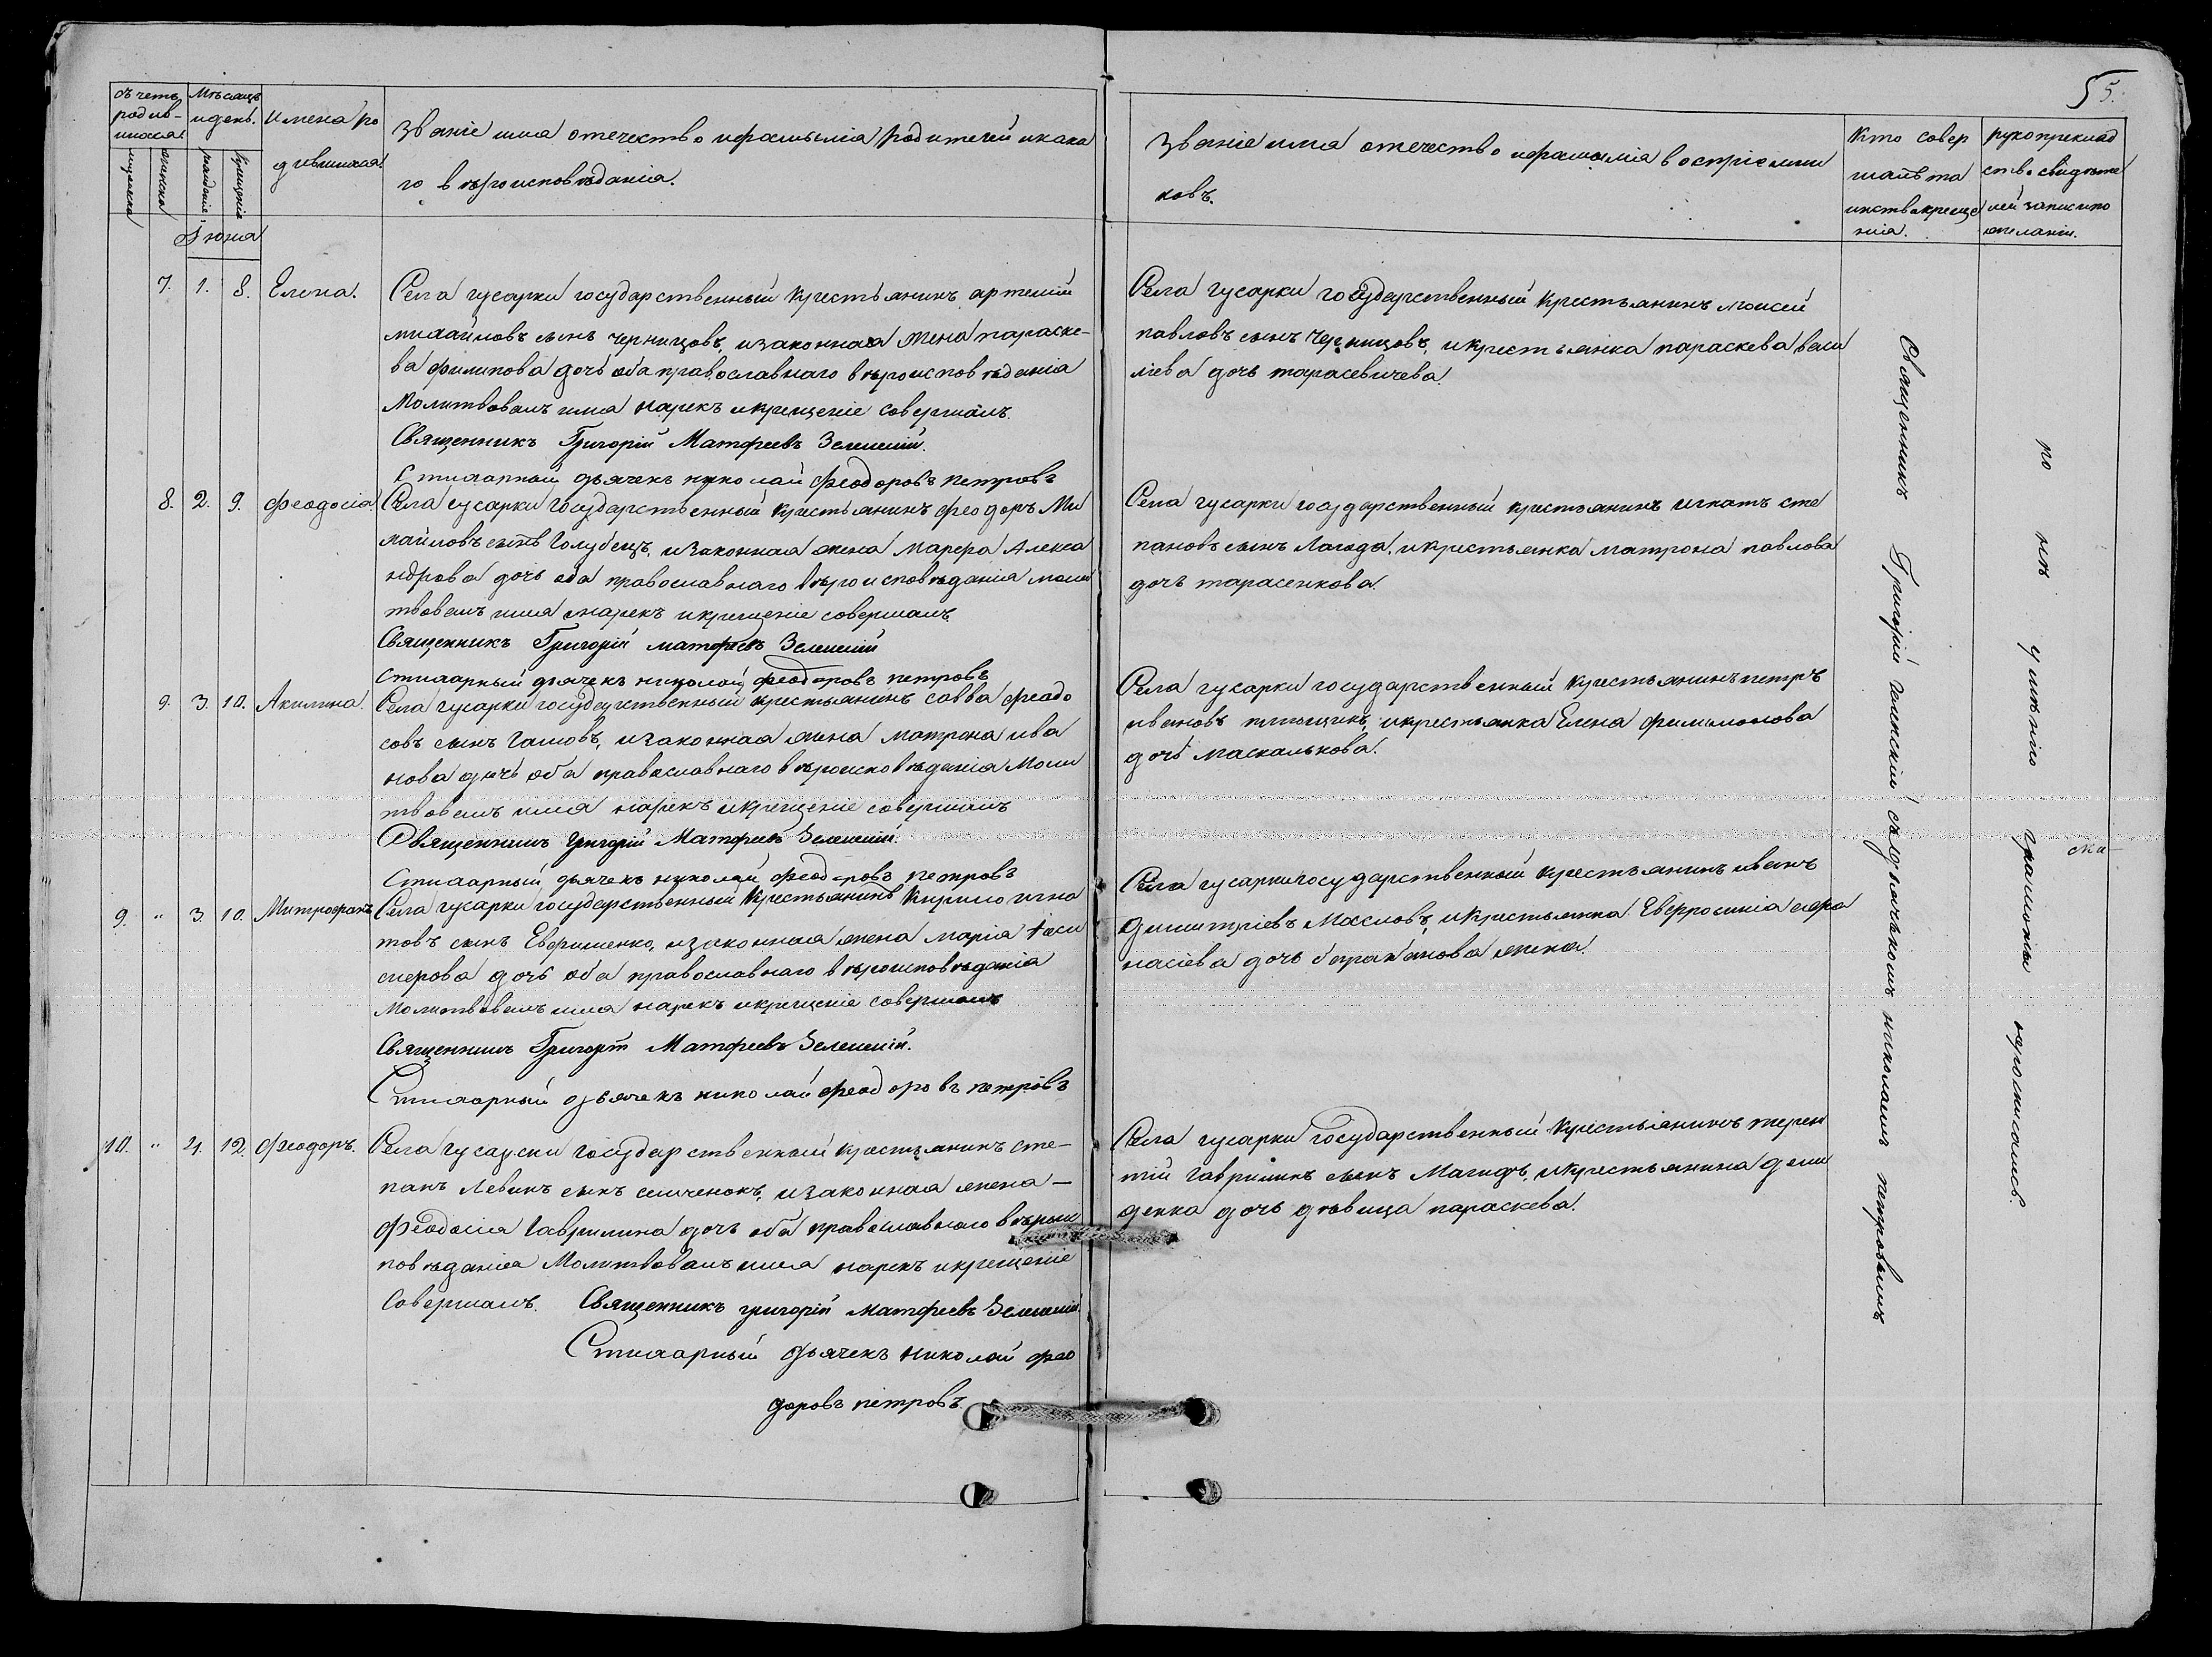 55.
Счетъ
родив-
шихся.
Мѣсяцъ
и день.
Имена ро
дившихся.
мужеска
женска
рожденіе,
крещеніе
Званіе имя отечество и фамилія родителей и како
го вѣроисповѣданія.
Званіе имя отечество и фамилія воспріемни
ковъ.
Кто совер
шалъ та
инство креще
нія.
рукоприклад
ство свидѣте
лей записи по
желанію.
Іюня
7. 1. 8. Елена.
Села гусарки государственный крестьянинъ артемій
михайловъ сынъ Черницовъ, и законная жена параске-
ва филипова дочь оба православнаго вѣроисповѣданія
Молитвовалъ имя нарекъ и крещеніе совершалъ.
Священникъ Григорій Матфеевъ Зеленскій.
Стихарный дьячекъ николай феодоровъ петровъ
Села гусарки государственный крестьянинъ моисей
павловъ сынъ Черницовъ, и крестьянка параскева васи
лиева дочь тарасевичева.
8. 2. 9. Феодосія.
Села гусарки государственный крестьянинъ феодоръ Ми
хайловъ сынъ Голубецъ, и законная жена Марфа Алекса
ндрова дочь оба православнаго вѣроисповѣданія моли
твовалъ имя нарекъ и крещеніе совершалъ.
Священникъ Григорій матфеевъ Зеленскій
Стихарный дьячекъ николай феодоровъ петровъ
Села гусарки государственный крестьянинъ игнатъ сте
пановъ сынъ Лагода, и крестьянка матрона павлова
дочь тарасенкова.
9. 3. 10. Акилина.
Села гусарки государственный крестьянинъ савва феодо
совъ сынъ Гашовъ, и законная жена матрона ива
нова дочь оба православнаго вѣроисповѣданія Моли
твовалъ имя нарекъ и крещеніе совершалъ
Священникъ Григорій Матфеевъ Зеленскій.
Стихарный дьячекъ николай феодоровъ петровъ
Села гусарки государственный крестьянинъ петръ
ивановъ и крестьянка Елена филимонова
дочь маскалькова.
9. " 3. 10. Митрофанъ
Села гусарки государственный крестьянинъ Кирило игна
товъ сынъ Ефименко, и законная жена марія
дочь оба православнаго вѣроисповѣданія
молитвовалъ имя нарекъ и крещеніе совершалъ
Священникъ Григорій Матфеевъ Зеленскій.
Стихарный дьячекъ николай феодоровъ петровъ
Села гусарки государственный крестьянинъ иванъ
димитріевъ Масловъ, и крестьянка Евфросинія афа
насіева дочь жена.
10. " 4. 12. Феодоръ.
Села гусарки государственный крестьянинъ сте-
панъ Левинъ сынъ семченокъ, и законная жена -
Феодосія Гаврилина дочь оба православнаго вѣроис
повѣданія Молитвовалъ имя нарекъ и крещеніе
совершалъ. Священникъ григорій матфеевъ Зеленскій.
Стихарный дьячекъ николай фео
доровъ петровъ
Села гусарки государственный крестьянинъ терен
тій Гаврилинъ сынъ и крестьянина деми
денка дочь дѣвица параскева.
Священникъ Григорій Зеленскій съ дьячкомъ николаемъ петровымъ
по не умѣнію грамоты не росписались